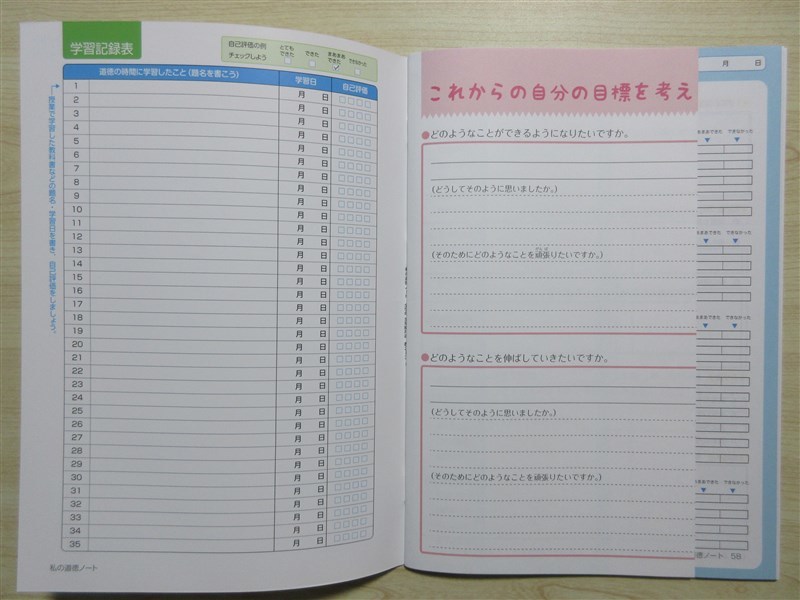 学習記録表
自己評価の例
チェックしよう
とても
できた
できた
まあまあ
できた
できなかった
道徳の時間に学習したこと(題名を書こう)
学習日
自己評価
授業で学習した教科書などの題名・学習日を書き、自己評価をしましょう。
1 月 日
2 月 日
3 月 日
4 月 日
5 月 日
6 月 日
7 月 日
8 月 日
9 月 日
10 月 日
11 月 日
12 月 日
13 月 日
14 月 日
15 月 日
16 月 日
17 月 日
18 月 日
19 月 日
20 月 日
21 月 日
22 月 日
23 月 日
24 月 日
25 月 日
26 月 日
27 月 日
28 月 日
29 月 日
30 月 日
31 月 日
32 月 日
33 月 日
34 月 日
35 月 日
私の道徳ノート
これからの自分の目標を考え
●どのようなことができるようになりたいですか。
(どうしてそのように思いましたか。)
(そのためにどのようなことを頑張りたいですか。)
●どのようなことを伸ばしていきたいですか。
(どうしてそのように思いましたか。)
(そのためにどのようなことを頑張りたいですか。)
月 日
まあまあできた できなかった
まあまあできた できなかった
まあまあできた できなかった
まあまあできた できなかった
道徳ノート 58